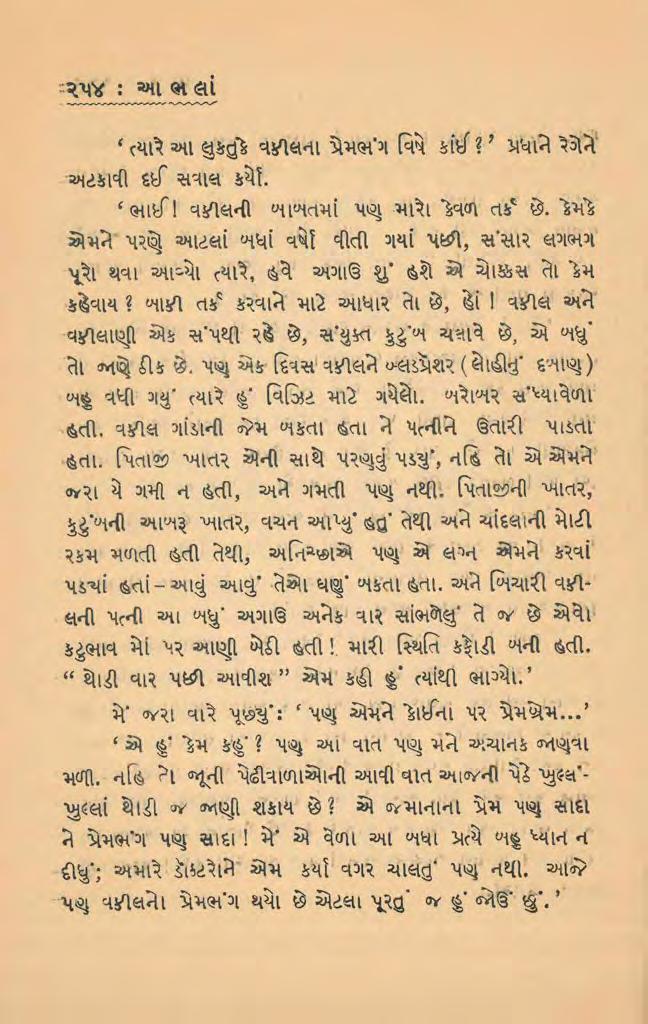 ૨૫૪ : આ ભ લાં
‘ ત્યારે આ લુકતુકે વકીલના પ્રેમભંગ વિષે કાંઈ ? ’ પ્રધાને રેગેને
અટકાવી દઈ સવાલ કર્યો.
‘ ભાઈ! વકીલની બાબતમાં પણ મારો કેવળ તર્ક છે. કેમકે
એમને પરણે આટલાં બધાં વર્ષો વીતી ગયાં પછી, સંસાર લગભગ
પૂરો થવા આવ્યો ત્યારે, હવે અગાઉ શું હશે એ ચોક્કસ તો કેમ
કહેવાય ? બાકી તર્ક કરવાને માટે આધાર તો છે, હોં ! વકીલ અને
વકીલાણી એક સંપથી રહે છે, સંયુક્ત કુટુંબ ચલાવે છે, એ બધું
તો જાણે ઠીક છે. પણ એક દિવસ વકીલને બ્લડપ્રેશર ( લોહીનું દબાણ )
બહુ વધી ગયું ત્યારે હું વિઝિટ માટે ગયેલો. બરોબર સંધ્યાવેળા
હતી. વકીલ ગાંડાની જેમ બકતા હતા ને પત્નીને ઉતારી પાડતા
હતા. પિતાજી ખાતર એની સાથે પરણવું પડ્યું, નહિ તો એ એમને
જરા યે ગમી ન હતી, અને ગમતી પણ નથી. પિતાજીની ખાતર,
કુટુંબની આબરૂ ખાતર, વચન આપ્યું હતું તેથી અને ચાંદલાની મોટી
રકમ મળતી હતી તેથી, અનિચ્છાએ પણ એ લગ્ન એમને કરવાં
પડ્યાં હતાં – આવું આવું તેઓ ઘણું બકતા હતા. અને બિચારી વકી-
લની પત્ની આ બધું અગાઉ અનેક વાર સાંભળેલું તે જ છે એવો
કટુભાવ મોં પર આણી બેઠી હતી ! મારી સ્થિતિ કફોડી બની હતી.
“ થોડી વાર પછી આવીશ ” એમ કહી હું ત્યાંથી ભાગ્યો. ’
મેં જરા વારે પૂછ્યું : ‘ પણ એમને કોઈના પર પ્રેમબ્રેમ... ’
‘ એ હું કેમ કહું ? પણ આ વાત પણ મને અચાનક જાણવા
મળી. નહિ તો જૂની પેઢીવાળાઓની આવી વાત આજની પેઠે ખુલ્લં-
ખુલ્લાં થોડી જ જાણી શકાય છે ? એ જમાનાના પ્રેમ પણ સાદા
ને પ્રેમભંગ પણ સાદા ! મેં એ વેળા આ બધા પ્રત્યે બહુ ધ્યાન ન
દીધું; અમારે ડૉક્ટરોને એમ કર્યા વગર ચાલતું પણ નથી. આજે
પણ વકીલનો પ્રેમભંગ થયો છે એટલા પૂરતું જ હું જોઉં છું. ’